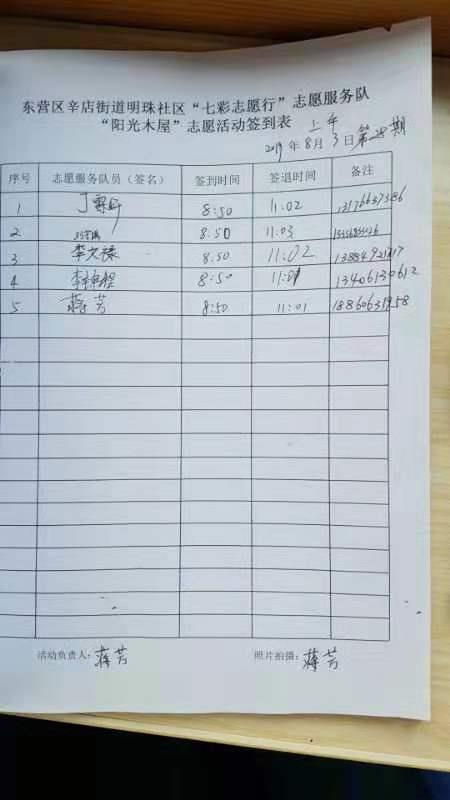 东营区辛店街道明珠社区“七彩志愿行”志愿服务队
“阳光木屋”志愿活动签到表 上午
2019年8月3日第28期
序号 志愿服务队员（签名） 签到时间 签退时间 备注
1 丁 8:50 11:02 13176637586
2 8:50 11:03
3 李文禄 8:50 11:02
4 李 8:50 11:01 13406130612
5 蒋芳 8:50 11:01 18860631958
活动负责人：蒋芳 照片拍摄：蒋芳